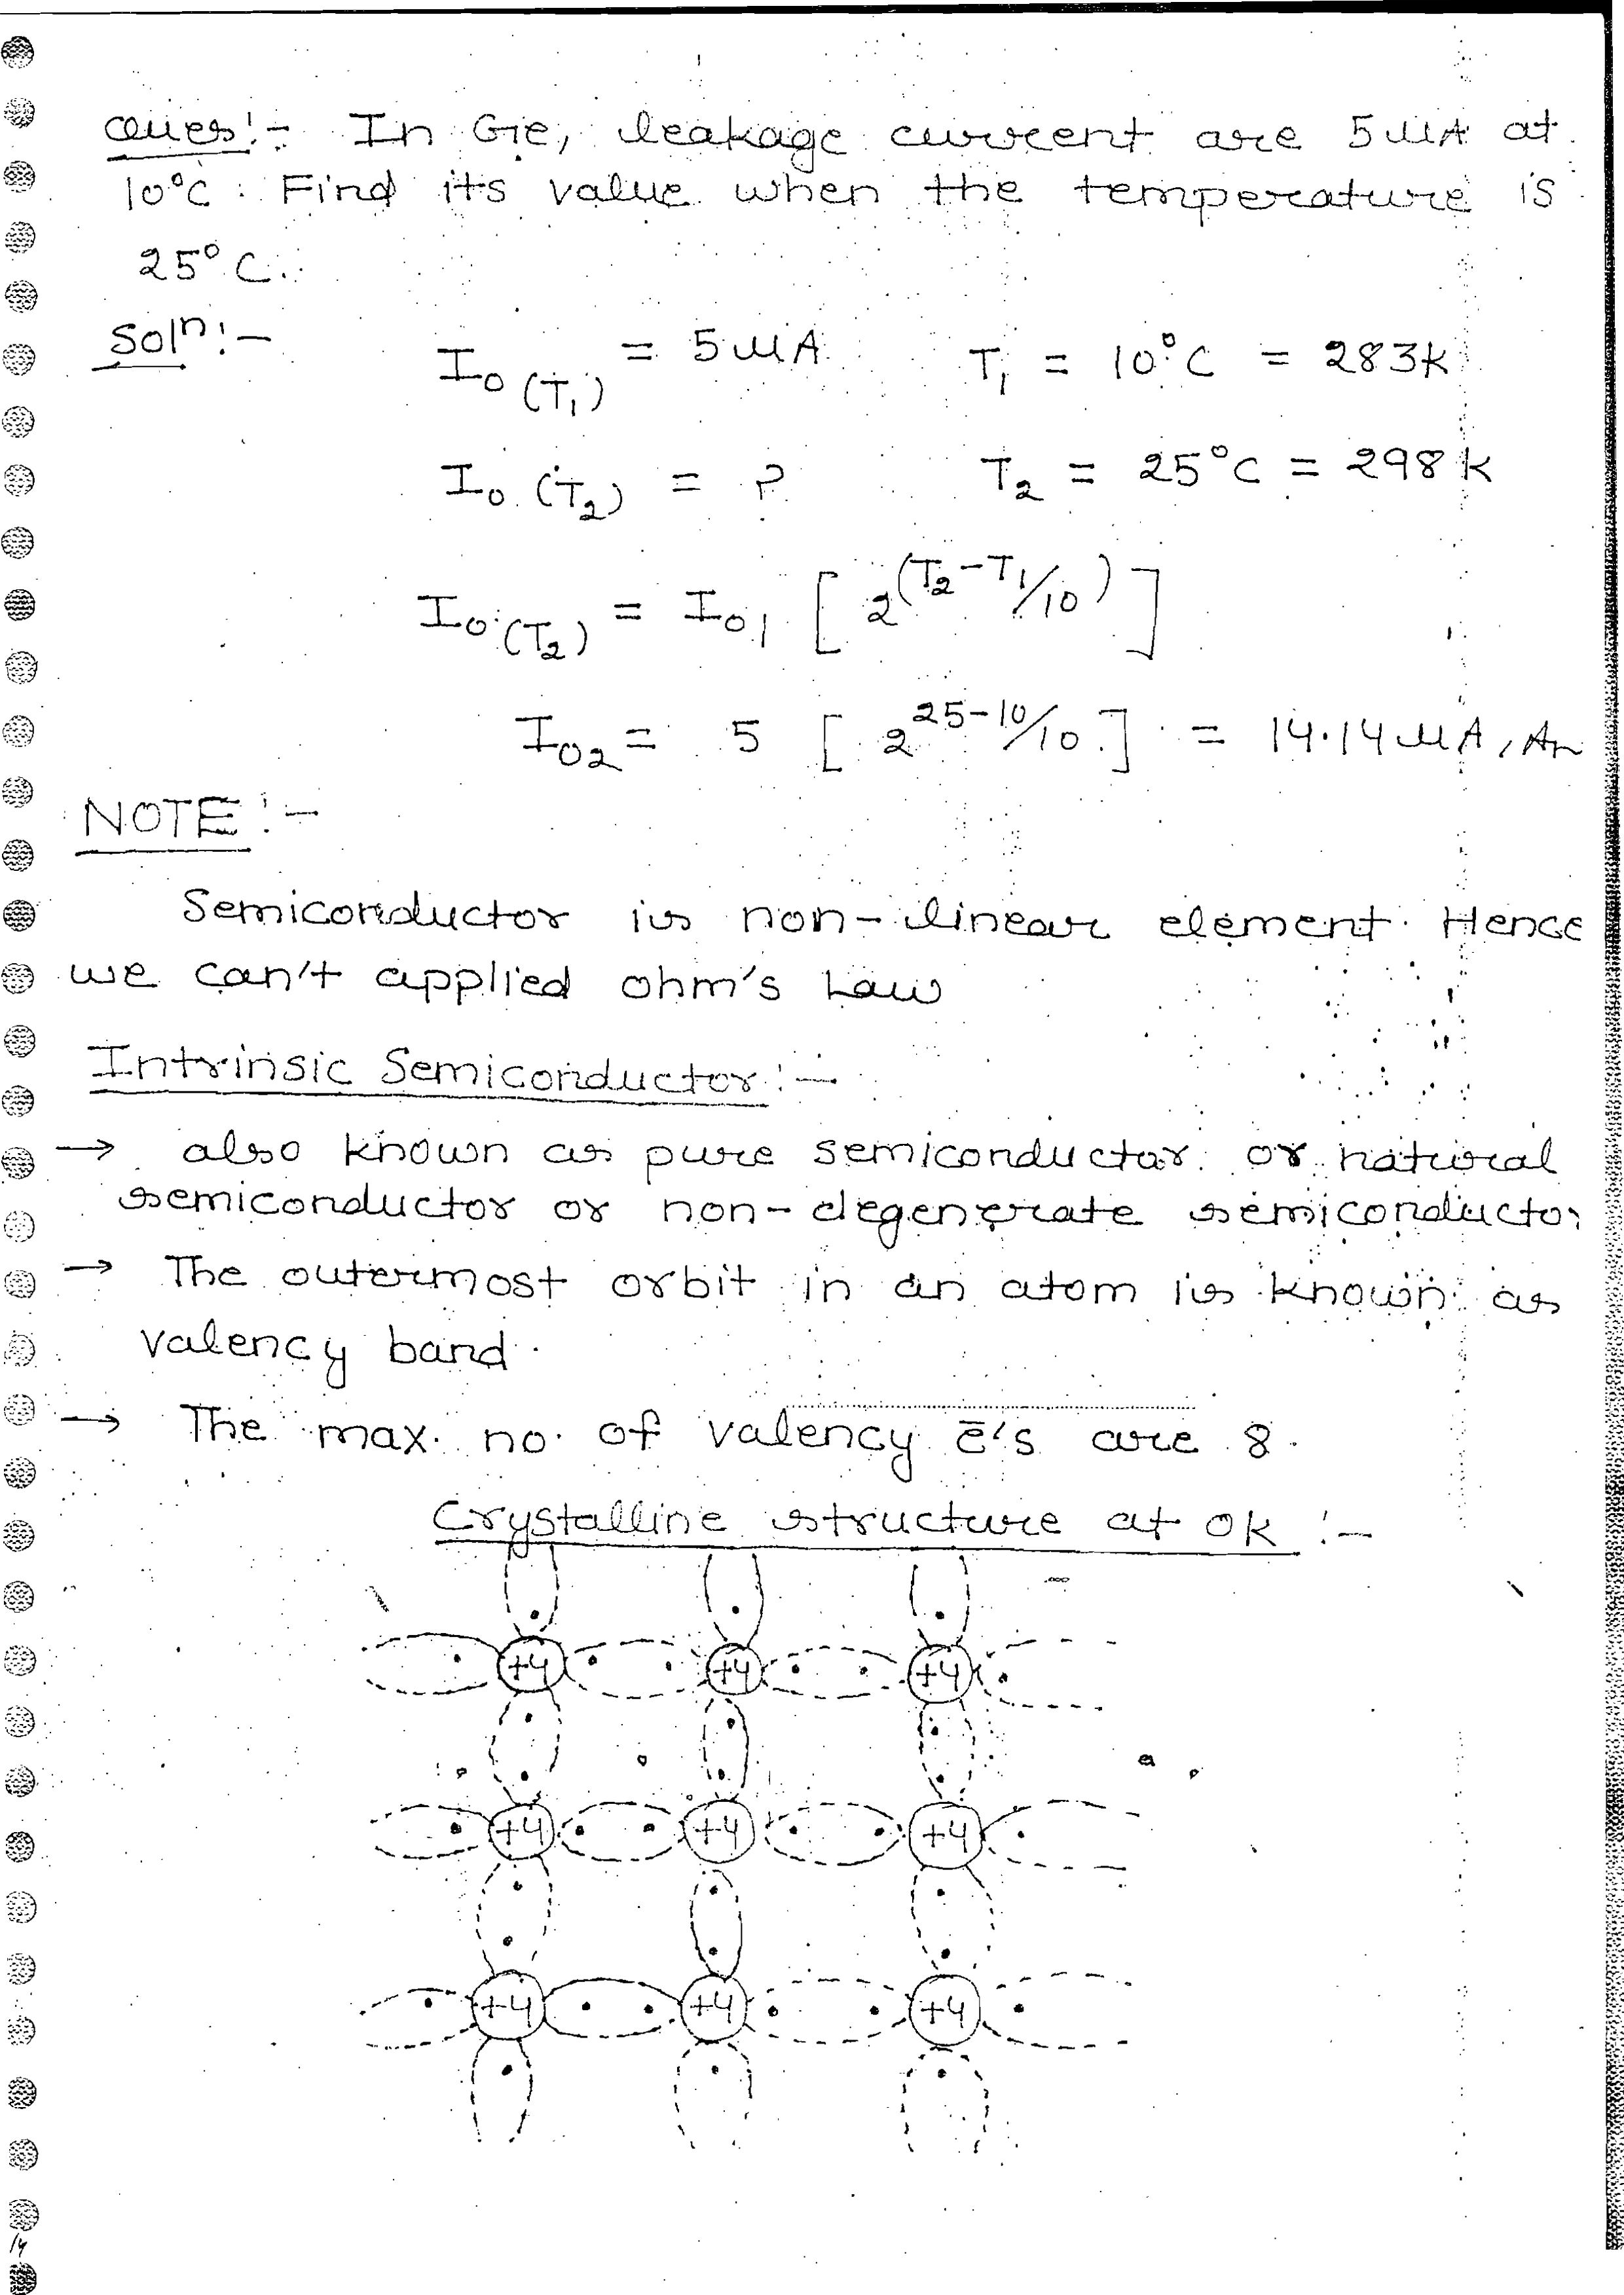 Ques:- In Ge, leakage current are 5 μA at
10°C. Find its value when the temperature is
25°C.
Solⁿ:- I₀(T₁) = 5 μA T₁ = 10°C = 283K
I₀(T₂) = ? T₂ = 25°C = 298K
I₀(T₂) = I₀₁ [2^(T₂-T₁/10)]
I₀₂ = 5 [2^25-10/10] = 14.14 μA,
NOTE:-
Semiconductor is non-linear element. Hence
we can't applied ohm's Law
Intrinsic Semiconductor:-
→ also known as pure semiconductor or natural
semiconductor or non-degenerate semiconductor
→ The outermost orbit in an atom is known as
valency band.
→ The max. no. of valency ē's are 8.
Crystalline structure at 0K :-
+4 +4 +4
+4 +4 +4
+4 +4 +4
14